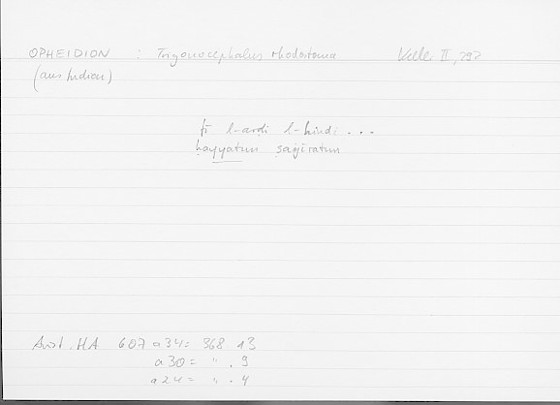 OPHEIDION : Trigonocephalus rhodostoma Kell. II, 292
(aus Indien)
fī l-arḍi l-hindi ...
ḥayyatun ṣaġīratun
Arist. HA 607 a 34 = 368 . 13
a 30 = " . 9
a 24 = " . 4